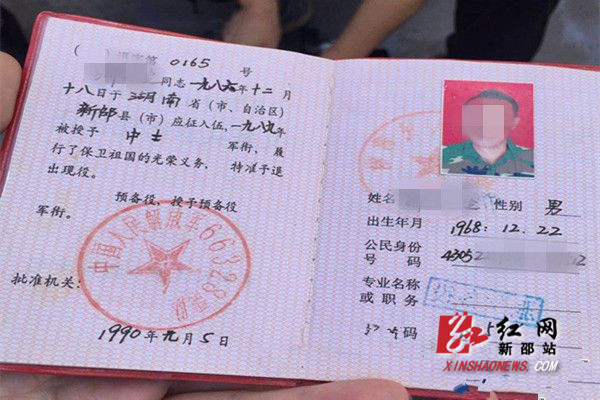 ( ) 退字第 0165 号
同志一九八六年十二月
十八日于 湖南 省(市、自治区)
新邵 县(市)应征入伍,一九八九年
被授予 中士 军衔,履
行了保卫祖国的光荣义务,特准予退
出现役。
预备役,授予预备役
军衔。
中国人民解放军66328部队
批准机关:
1990年元月5日
姓名 性别 男
出生年月 1968.12.22
公民身份
号码 43052 2
专业名称
或职务
号码
红网
新邵站
XINSHAONEWS.COM